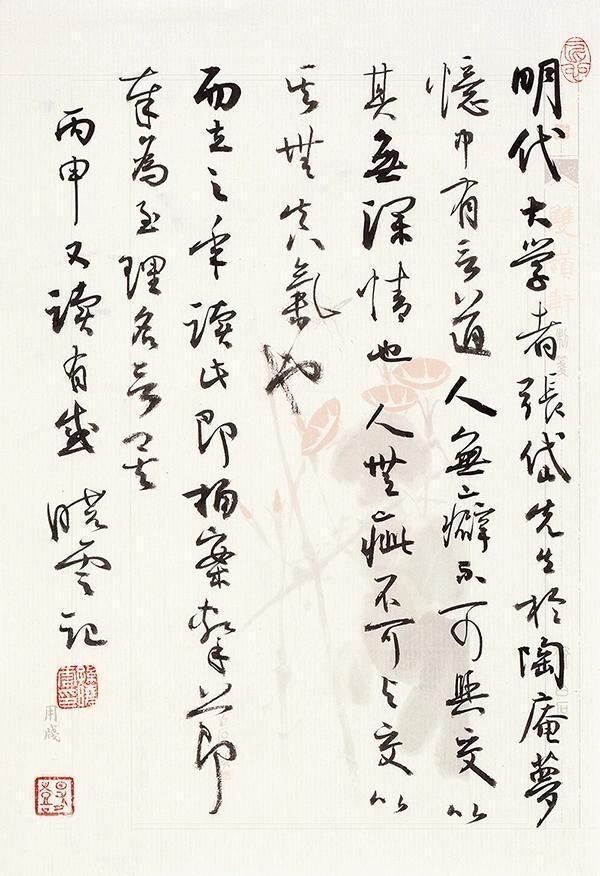 明代大学者張岱先生於陶庵夢
憶中有言道人無癖不可與交以
其無深情也人無疵不可与交以
其無真氣也
而立之年读此即拍案擊
即
奉為至理名言
丙申又读有感 晓雲記
雙嶺軒
用牋